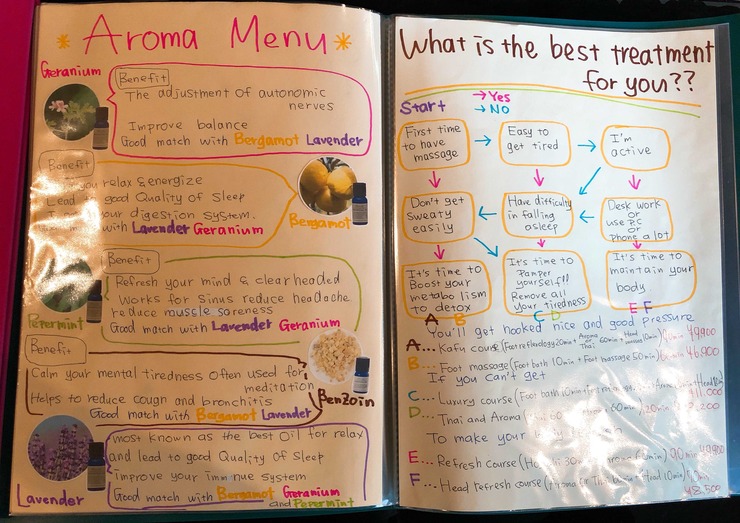 * Aroma Menu *
Geranium
Benefit
The adjustment of autonomic
nerves
Improve balance
Good match with Bergamot Lavender
Benefit
you relax & energize
Lead good Quality of Sleep
your digestion system.
with Lavender Geranium
Bergamot
Benefit
Refresh your mind & clear headed
Works for Sinus reduce headache
reduce muscle soreness
Good match with Lavender Geranium
Pepermint
Benefit
Calm your mental tiredness Often used for
meditation
Helps to reduce cough and bronchitis
Good match with Bergamot Lavender
BenZoin
most known as the best Oil for relax
and lead to good Quality Of Sleep
improve your immnue system
Good match with Bergamot Geranium
and Pepermint
Lavender
What is the best treatment
for you??
Start
→ Yes
→ NO
First time
to have
massage
Easy to
get tired
I'm
active
Don't get
sweaty
easily
Have difficulty
in falling
asleep
Desk work
or
use P.C
or
Phone a lot
It's time to
Boost your
metabolism
to detox
It's time to
Pamper
yourself!!
Remove all
your tiredness
It's time to
maintain your
body
A B
C D
E F
You'll get hooked nice and good pressure
A... Kafu course (Foot reflexology 20min + Aroma or Thai 60min + Head 10min) 90min
B... Foot massage (Foot bath 10min + Foot massage 50min) 60min ¥6,900
If you can't get
C... Luxury course (Foot bath 10min + 11,000
D... Thai and Aroma ( 60 60min) 120min
To make your
E... Refresh course ( 30 60min) 90min
F... Head refresh course (Aroma or Thai + Head 10min)
¥8,500